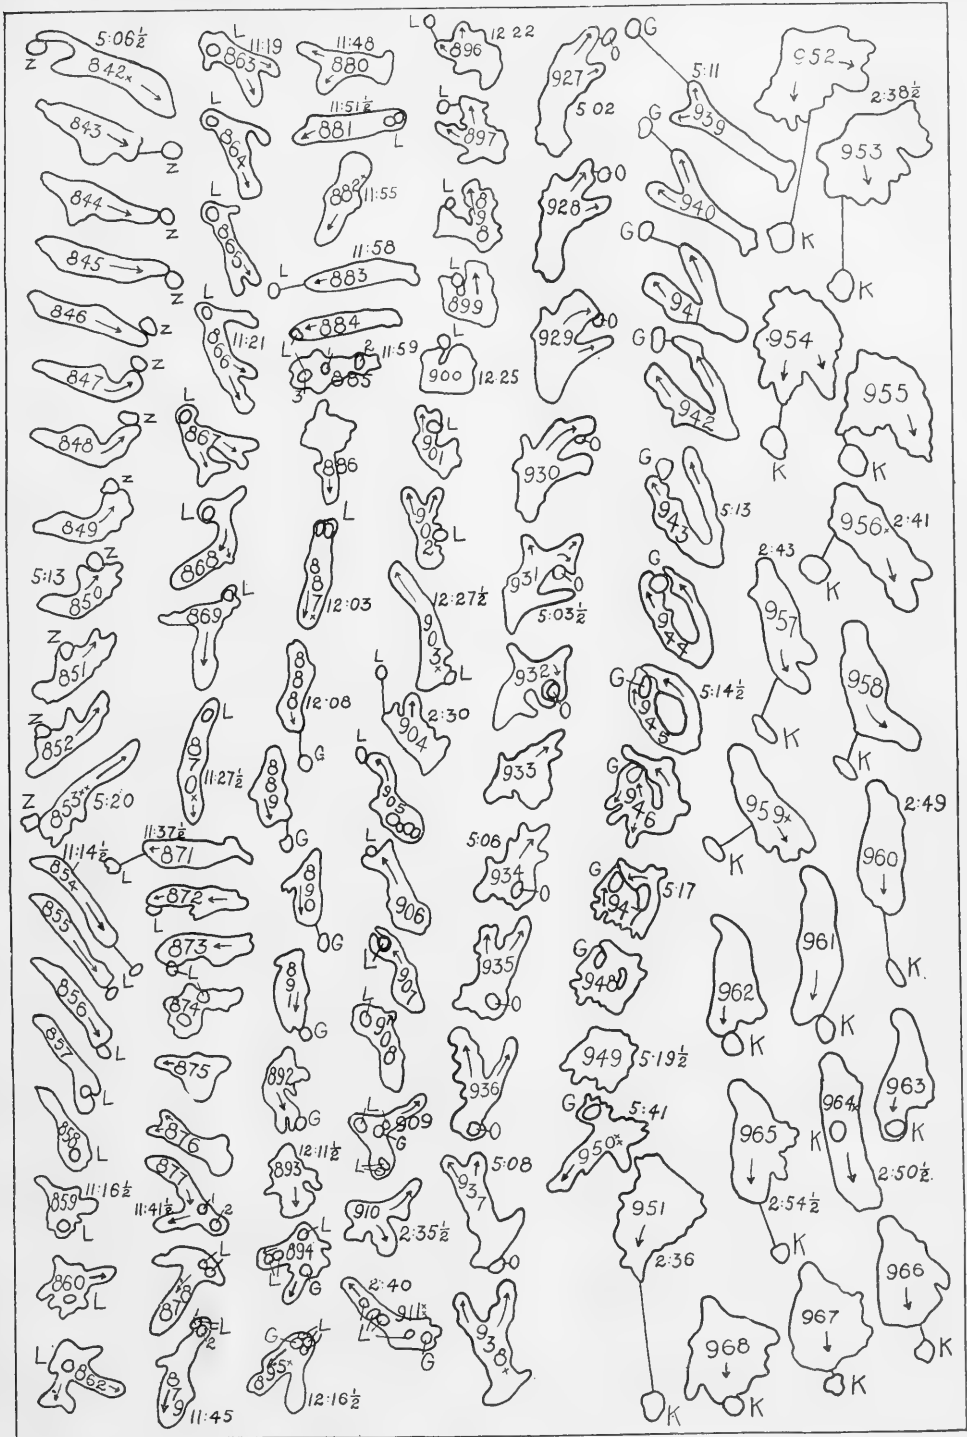 5:06½
842x
Z
843
Z
844
Z
845
Z
846
Z
847
Z
848
Z
849
Z
5:13
850
Z
851
Z
852
Z
853xx
5:20
Z
11:14½
854
L
855
856
L
857
L
858
L
859
11:16½
L
860
L
L
862
L
11:19
863
L
864
L
865
L
11:21
866
L
867
L
868
869
L
L
870x
11:27½
11:37½
871
L
872
L
873
L
874
875
876
877
1
2
11:41½
878
L
1
L
2
879
11:45
11:48
880
11:51½
881
L
882x
11:55
11:58
883
L
884
L
1
2
11:59
885
3
886
L
887x
12:03
888
12:08
G
889
G
890
G
891
G
892
G
12:11½
893
L
894
L
G
G
L
895x
12:16½
L
12:22
896
L
897
L
898
L
899
L
900
12:25
L
901
902
L
12:27½
903x
L
L
2:30
904
L
905
L
906
L
907
L
908
L
909
G
L
910
2:35½
2:40
911xx
L
G
927
O
5:02
928
O
929
O
930
O
931
O
5:03½
932
O
933
5:06
934
O
935
O
936
O
5:08
937
O
938x
G
5:11
939
G
940
G
941
G
942
G
943
5:13
G
944
G
5:14½
945
G
946
G
5:17
947
G
948
949
5:19½
G
5:41
950xx
951
2:36
K
952
K
2:38½
953
K
954
K
955
K
956x
2:41
K
2:43
957
K
958
K
959x
K
2:49
960
K.
961
K
962
K
963
K
964x
K
2:50½.
965
2:54½
K
966
K
967
K
968
K